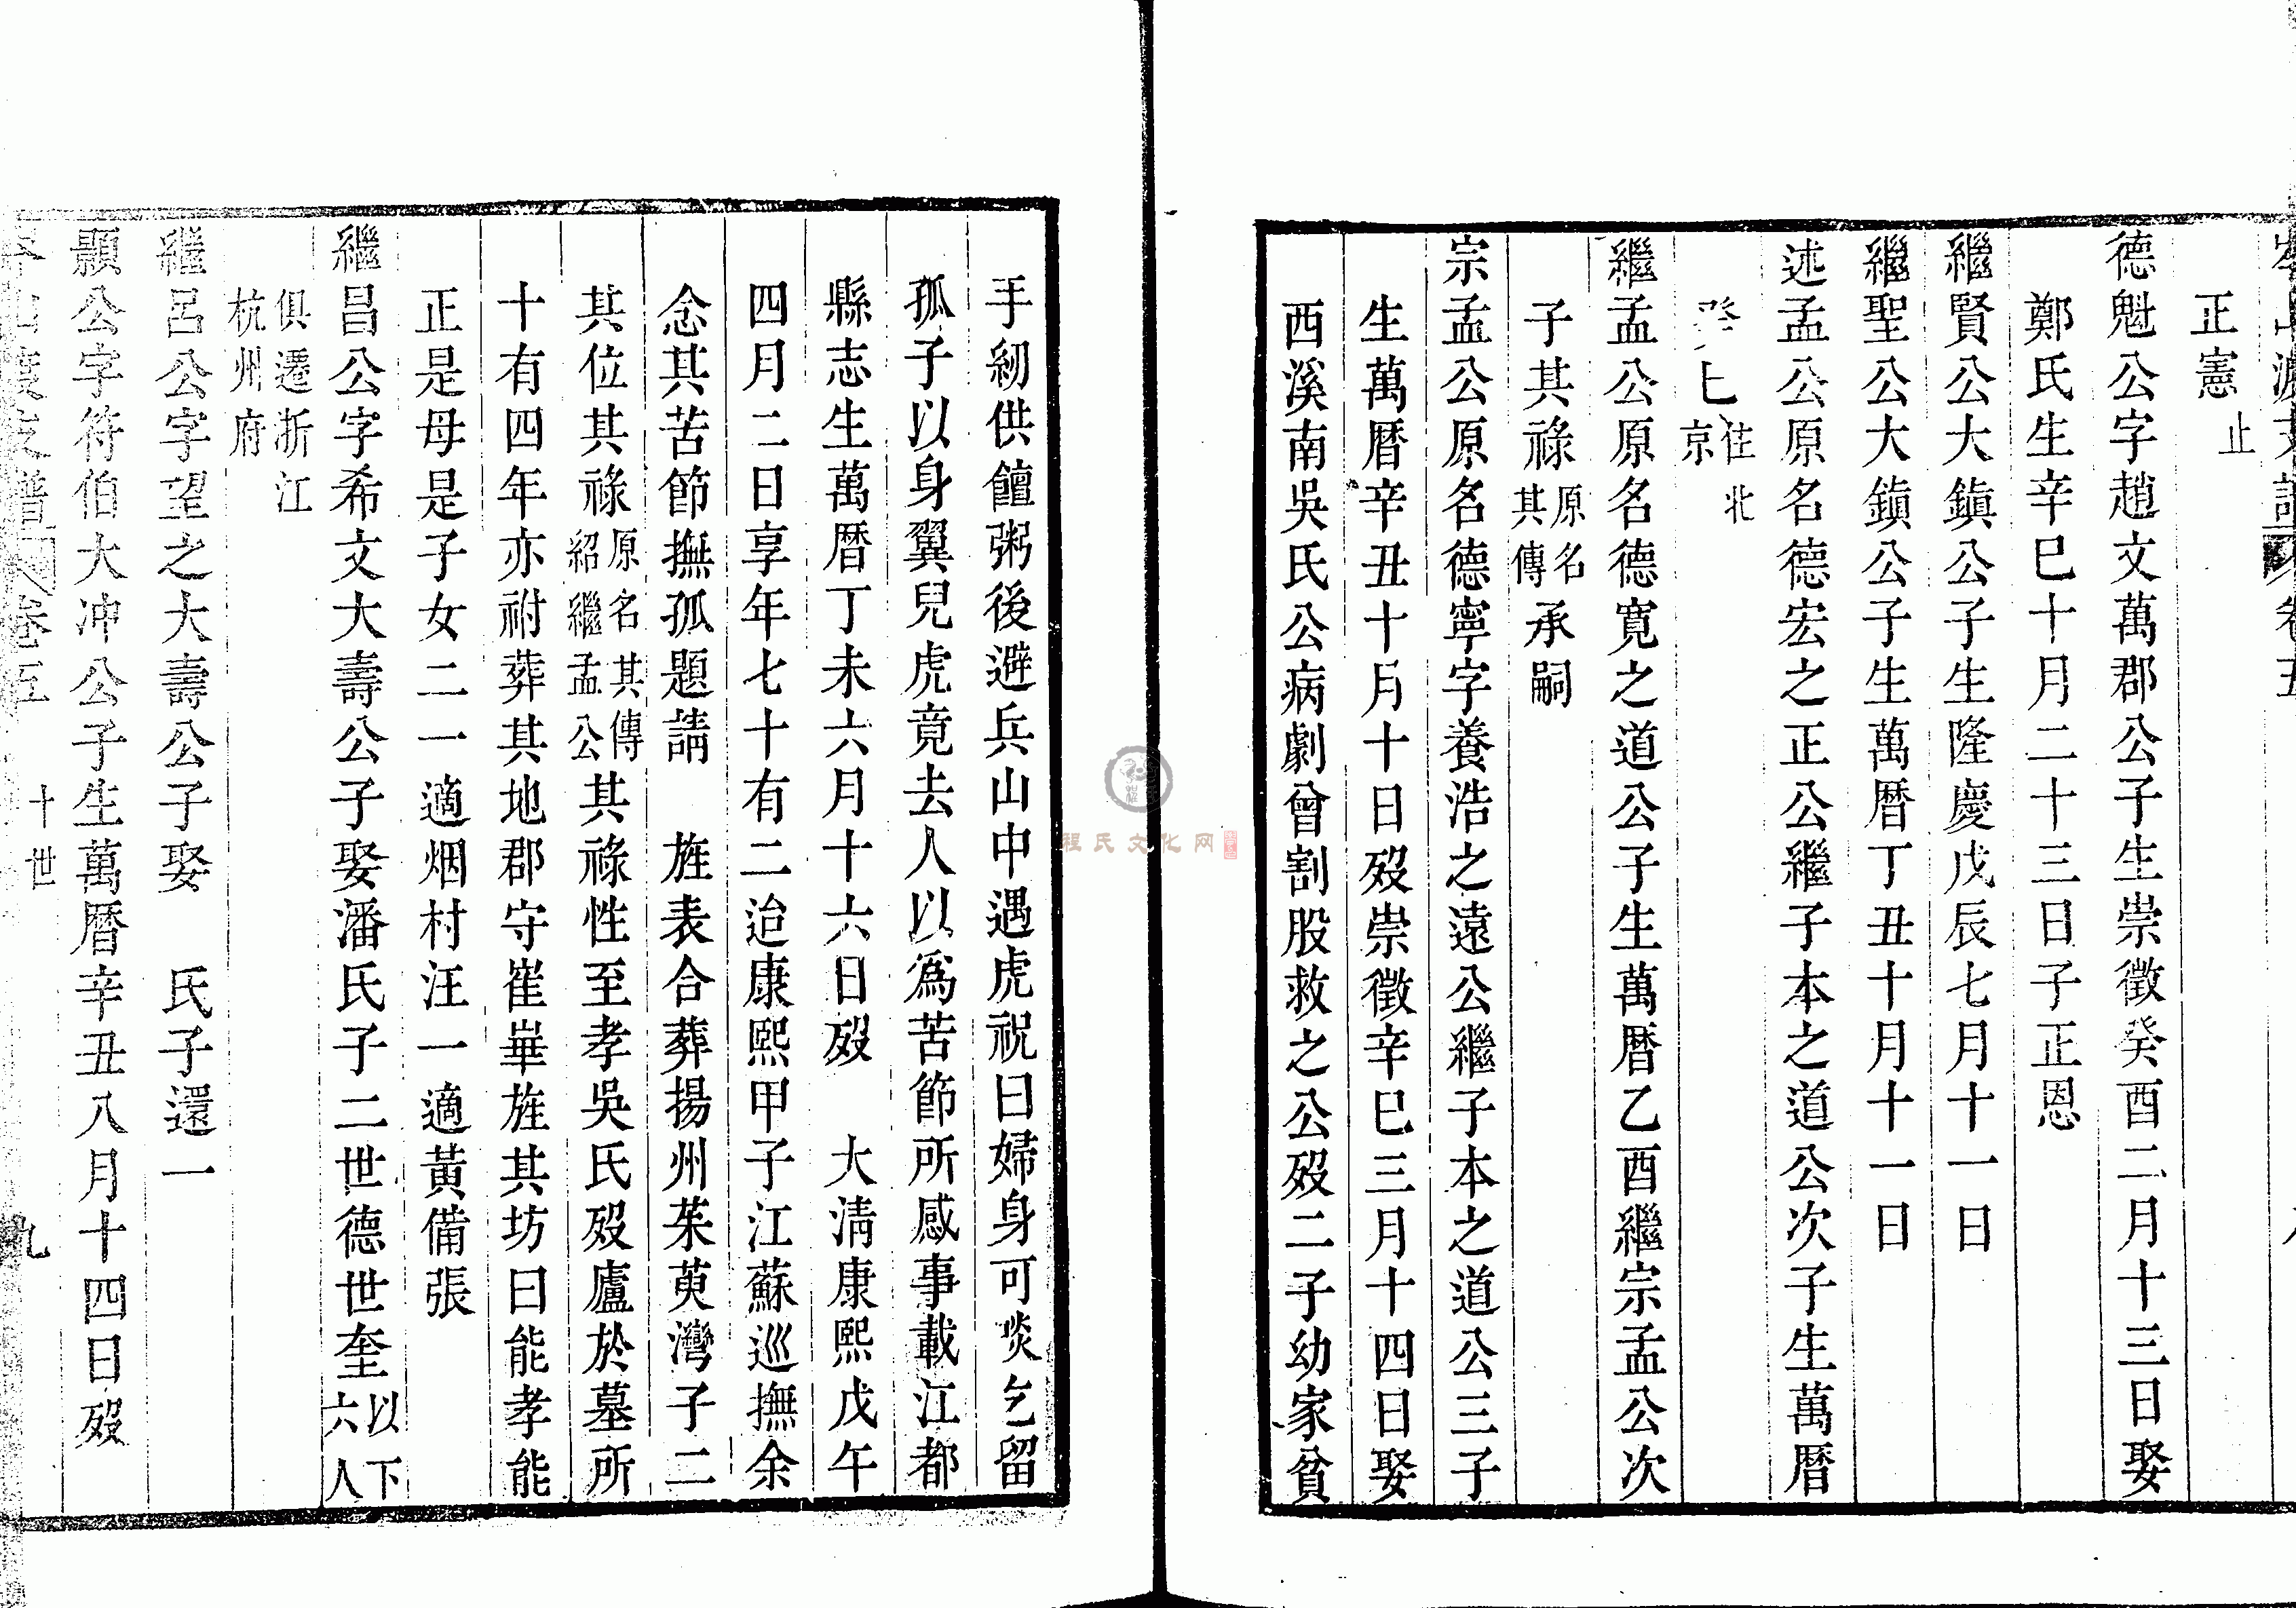 正憲止
德魁公字趙文萬郡公子生崇徵癸酉二月十三日娶
鄭氏生辛巳十月二十三日子正恩
繼賢公大鎮公子生隆慶戊辰七月十一日
繼聖公大鎮公子生萬曆丁丑十月十一日
述孟公原名德宏之正公繼子本之道公次子生萬曆
住北京
繼孟公原名德寬之道公子生萬曆乙酉繼宗孟公次
子其祿原名其傳承嗣
宗孟公原名德寧字養浩之遠公繼子本之道公三子
生萬曆辛丑十月十日歿崇徵辛巳三月十四日娶
西溪南吳氏公病劇曾割股救之公歿二子幼家貧
手紉供饘粥後避兵山中遇虎祝曰婦身可啖乞留
孤子以身翼兒虎竟去人以為苦節所感事載江都
縣志生萬曆丁未六月十六日歿 大清康熙戊午
四月二日享年七十有二迨康熙甲子江蘇巡撫余
念其苦節撫孤題請 旌表合葬揚州茱萸灣子二
其位其祿原名其傳紹繼孟公其祿性至孝吳氏歿廬於墓所
十有四年亦祔葬其地郡守崔崋旌其坊曰能孝能
正是母是子女二一適烟村汪一適黃備張
繼昌公字希文大壽公子娶潘氏子二世德世奎以下六人
俱遷浙江杭州府
繼呂公字望之大壽公子娶 氏子還一
顯公字符伯大冲公子生萬曆辛丑八月十四日歿
卷五
十世
九
程氏文化网